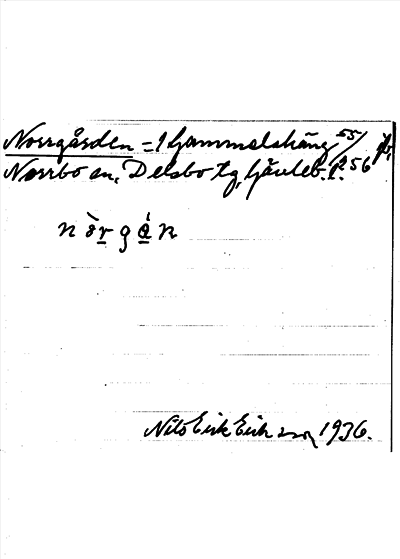 Norrgården = 1 Gammelsträng 55/256
Norrbo sn, Delsbo tg, Gävleb. l.
n ò r g ǻ n
Nils Erik Eriksson 1936.